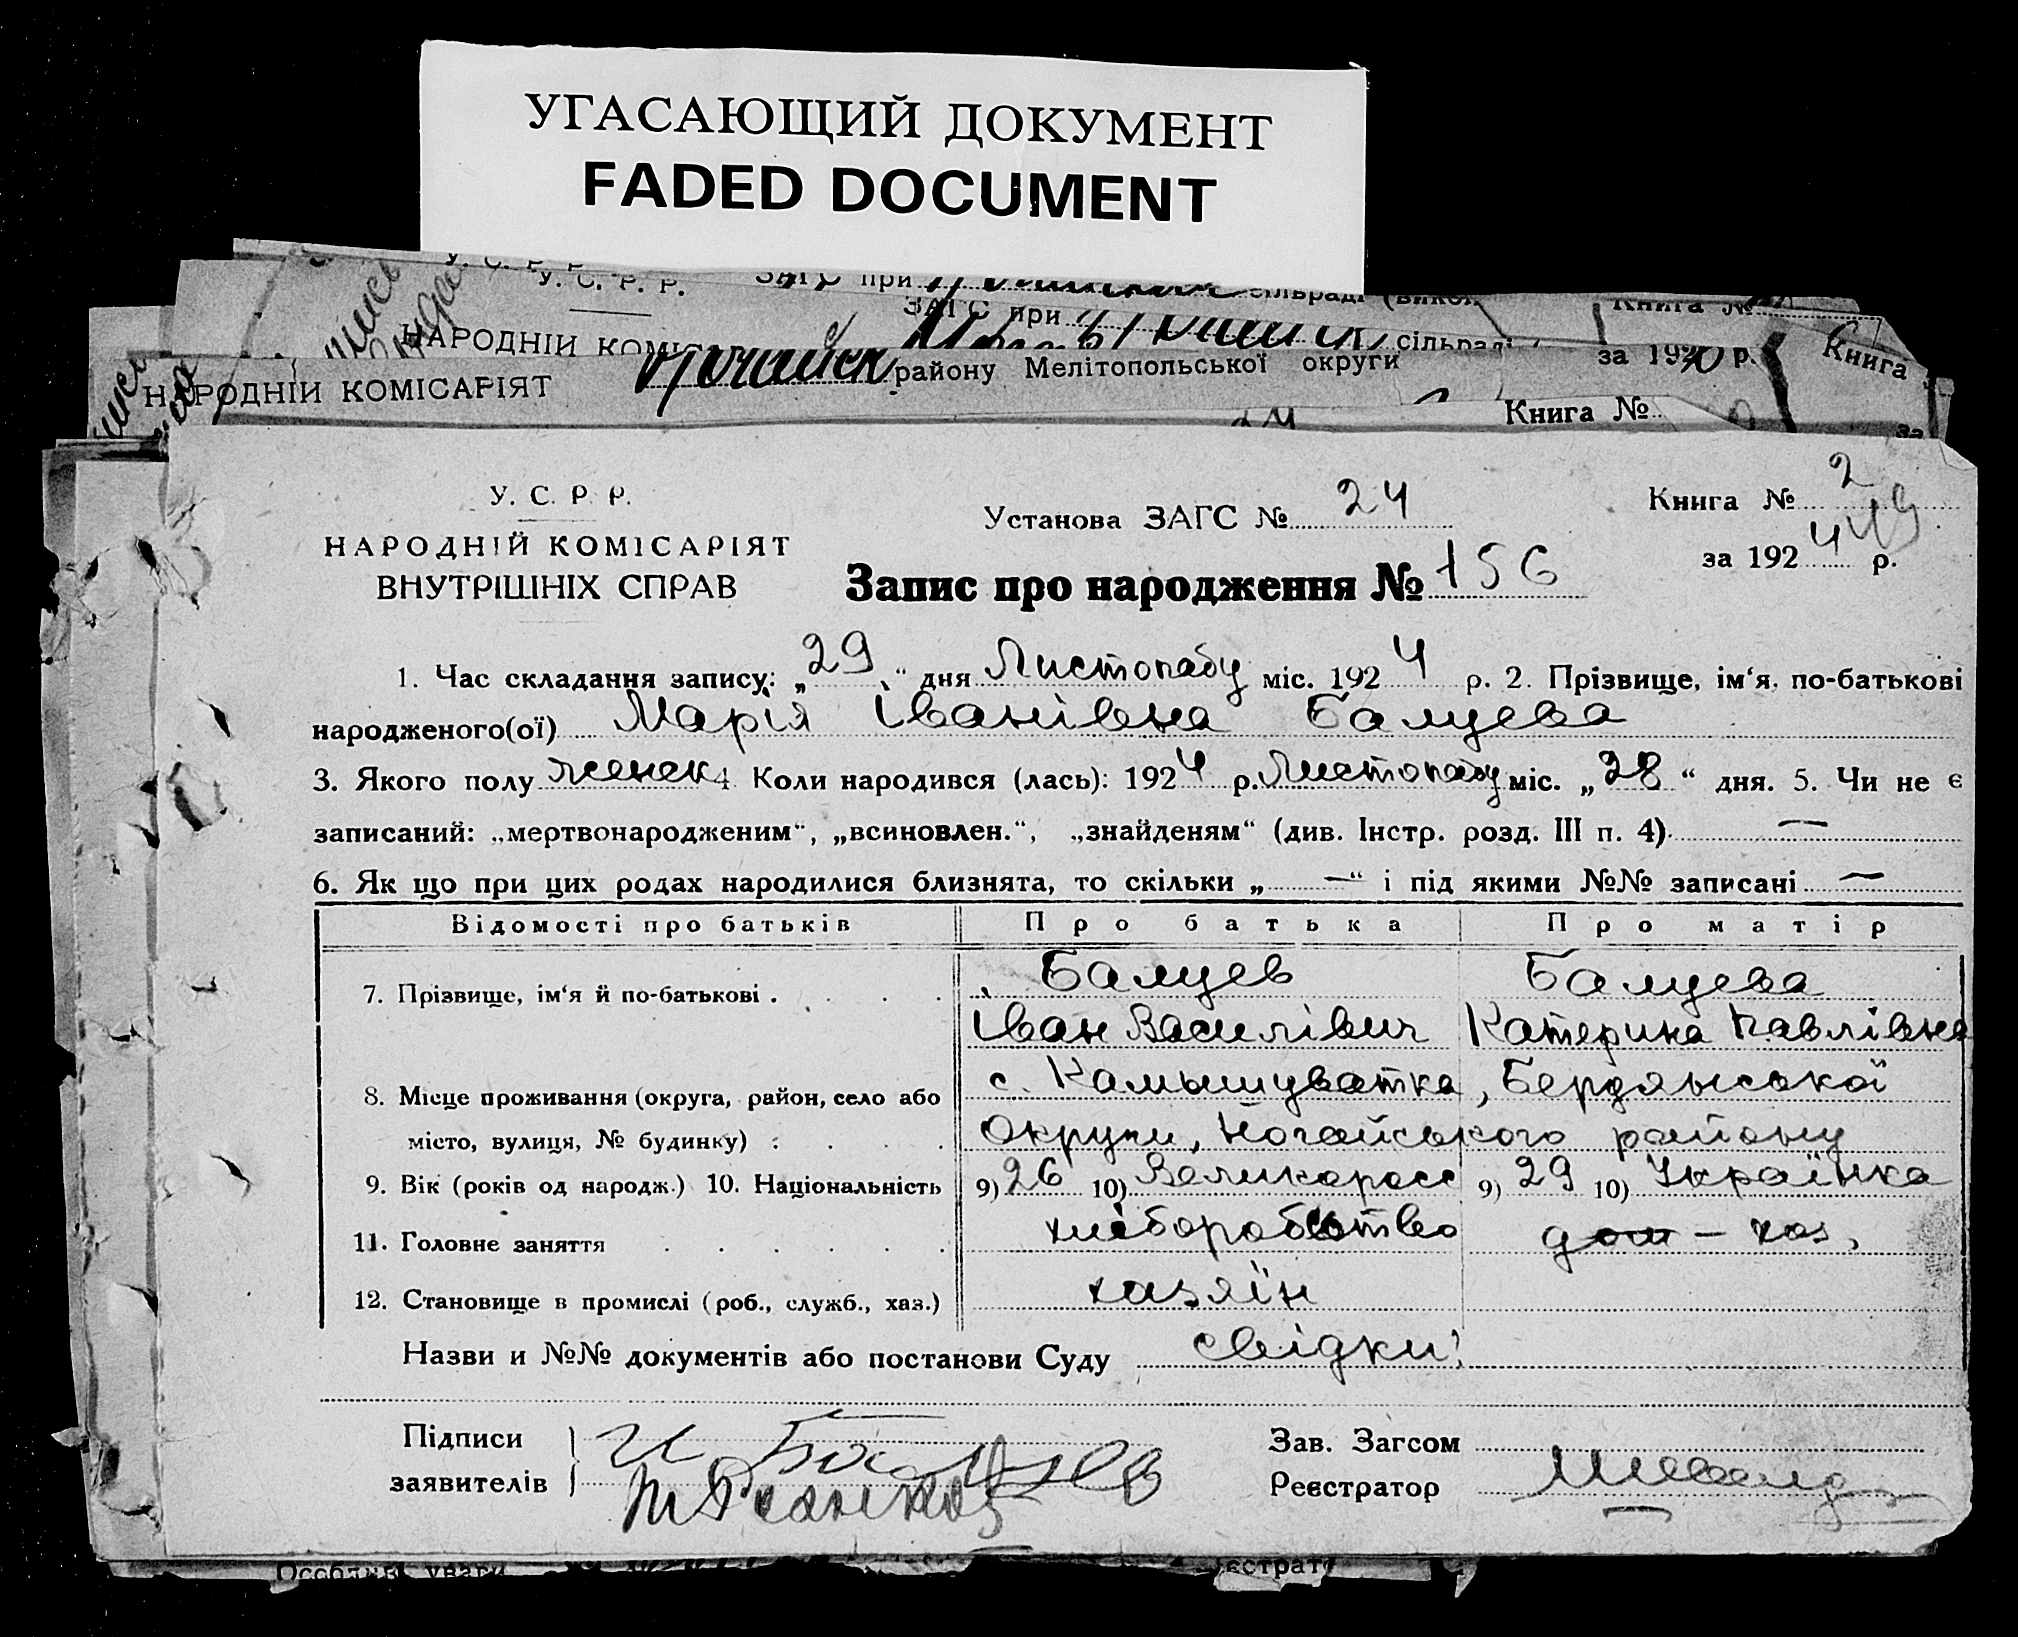 УГАСАЮЩИЙ ДОКУМЕНТ
FADED DOCUMENT
У. С. Р. Р. ЗАГС при
У. С. Р. Р. ЗАГС при сільраді Книга №
НАРОДНІЙ сільраді
НАРОДНІЙ КОМІСАРІЯТ району Мелітопольської округи за 19 р. Книга
Книга №
У. С. Р. Р. Установа ЗАГС № 24 Книга № 2
НАРОДНІЙ КОМІСАРІЯТ за 1924 р. 449
ВНУТРІШНІХ СПРАВ Запис про народження № 156
1. Час складання запису: „29“ дня Листопаду міс. 1924 р. 2. Прізвище, ім‘я, по-батькові
народженого(ої) Марія Іванівна Балуева
3. Якого полу женск 4. Коли народився (лась): 1924 р. Листопаду міс. „28“ дня. 5. Чи не є
записаний: „мертвонародженим“, „всиновлен.“, „знайденям“ (див. Інстр. розд. III п. 4) —
6. Як що при цих родах народилися близнята, то скільки „—“ і під якими №№ записані —
Відомості про батьків Про батька Про матір
7. Прізвище, ім‘я й по-батькові . . . . Балуев Балуева
Іван Василівич Катерина Павлівна
8. Місце проживання (округа, район, село або с. Камышуватка, Бердянської
місто, вулиця, № будинку) : . . . Округи, Ногайського району
9. Вік (років од народж.) 10. Національність 9) 26 10) Великоросс 9) 29 10) Українка
11. Головне заняття . . . . . . хліборобство дом – хоз,
12. Становище в промислі (роб., служб., хаз.) хазяїн
Назви и №№ документів або постанови Суду свідки:
Підписи И Балуев Зав. Загсом
заявителів Реєстратор
Особливі уваги